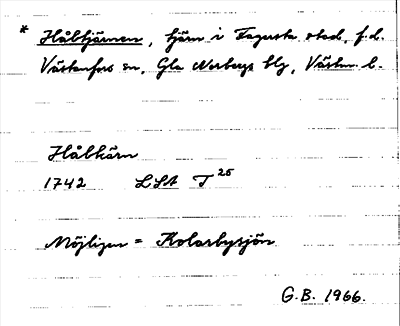 * Håbtjärnen, tjärn i Fagersta stad, f.d.
Västanfors sn, Gla Norbergs blg, Västm. l.
Håbkärn
1742 LSA T 25
Möjligen = Kolarbysjön
G.B. 1966.